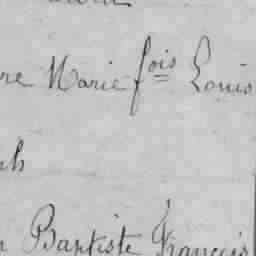 re Marie fois Louis
h
Baptiste François